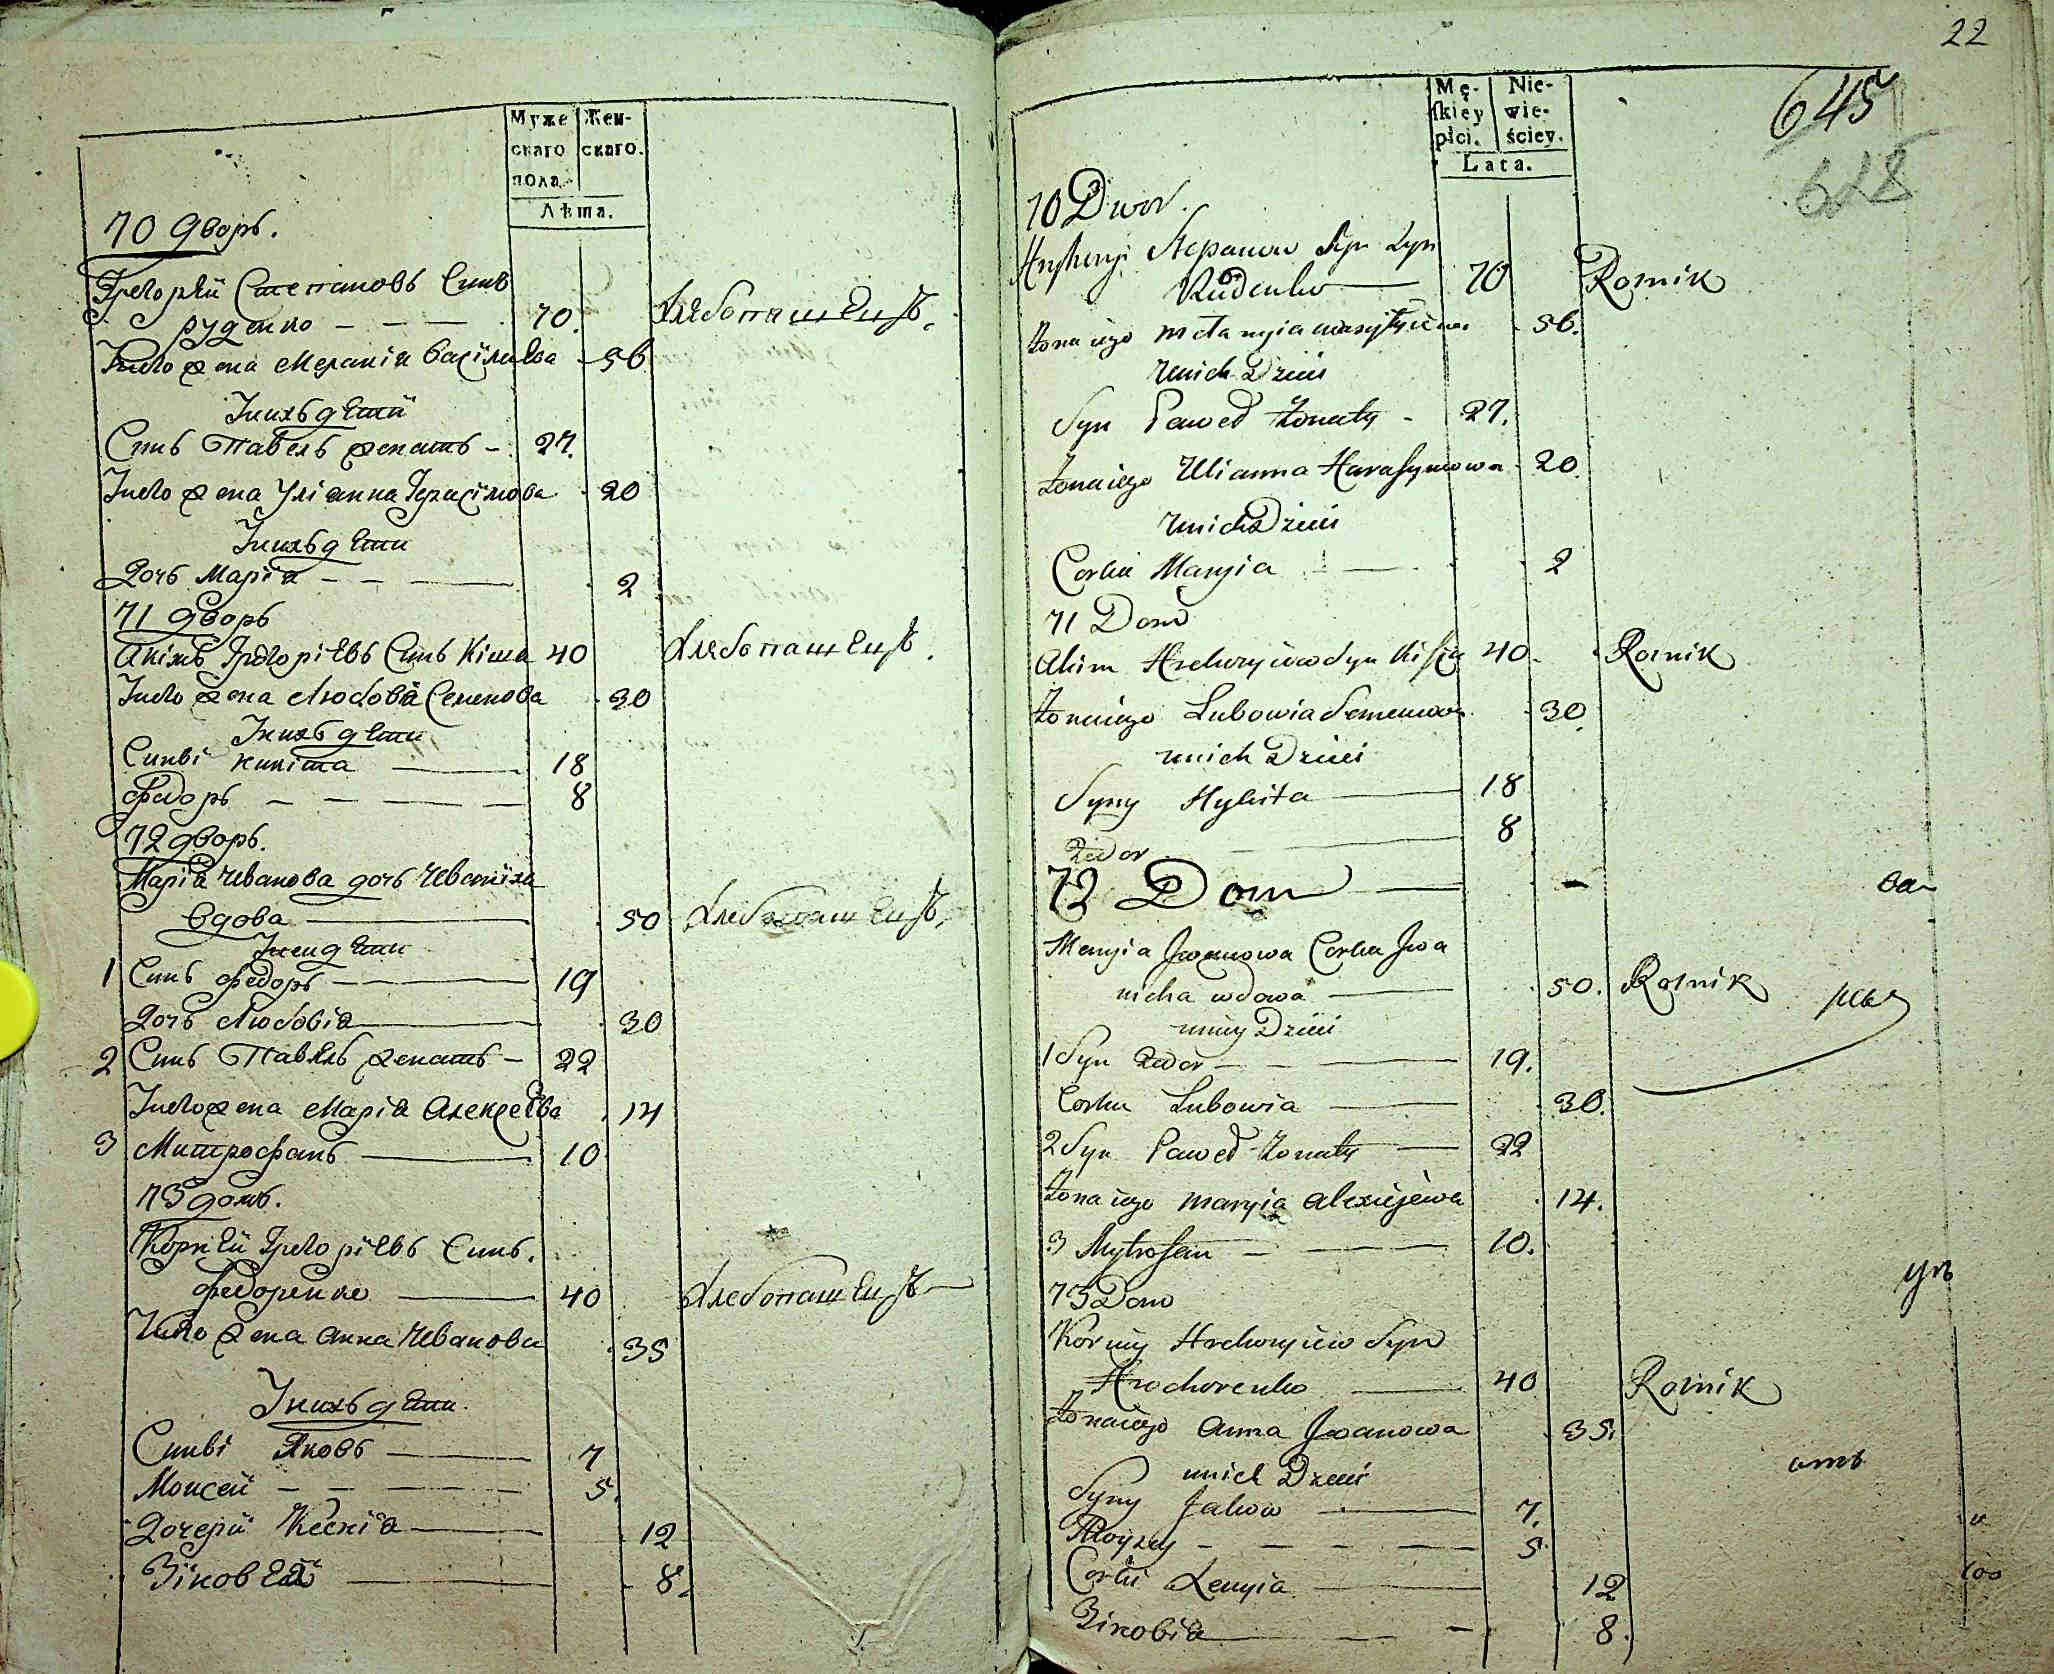 Муже скаго пола
Жен- скаго.
Лѣта.
70 дворъ.
Григорїй Степановъ Синъ
руденко 70. Хлебопашецъ.
Иего жена Меланія василиева 56
Інихъ дети
Синъ Павелъ женатъ 27.
Иего жена Улїанна Герасімова 20
Інихъ дети
Дочь Марїя 2
71 дворъ
Акімъ Григорїевъ Синъ Кіша 40 Хлебопашецъ.
Иего жена Любовія Семенова 30
Інихъ дети
Синві никита 18
Федоръ 8
72 дворъ.
Марія Иванова дочь Иваниха
вдова 50 Хлебопашецъ,
Інеи дети
1 Синъ Федоръ 19
Дочь Любовія 30
2 Синъ Павелъ женатъ 22
Иего жена Марія Алексеева 14
3 Митрофанъ 10
73 домъ.
Корней Григорїевъ Синъ.
Федоренко 40 Хлебопашецъ
Иего жена Анна Иванова 35
Інихъ дети.
Синві Яковъ 7
Моисей 5.
Дочери Ксенія 12
Зіновія 8.
22
645
628
Mę- skiey płci.
Nie- wie- ściey.
Lata.
70 Dwor.
Hryhory Stepanow Syn
Rudenko 70 Rolnik
żona iego Metanyia wasylijewa 56.
unich Dzieci
Syn Paweł żonaty 27.
żona iego Ulianna Harasymowa 20
unich Dzieci
Corka Maryia 2
71 Dom
Akim Hrehoryiew Syn Kisza 40 Rolnik
żona iego Lubowia Semenowa 30
unich Dzieci
Syny Nykita 18
Fedor 8
72 Dom
ва
Maryia Jwanowa Corka Jwa
nicha wdowa 50. Rolnik
uniey Dzieci
1 Syn Fedor 19.
Corka Lubowia 30.
2 Syn Paweł żonaty 22
żona iego Maryia Alexiejewa 14.
3 Mytrofan 10.
73 Dom
Korniy Hrehoryiew Syn
Hrehorenko 40 Rolnik
żona iego Anna Jwanowa 35.
unich Dzieci
Syny Jakow 7.
Moyzey 5
Corki Xenyia 12
Зіновія 8.